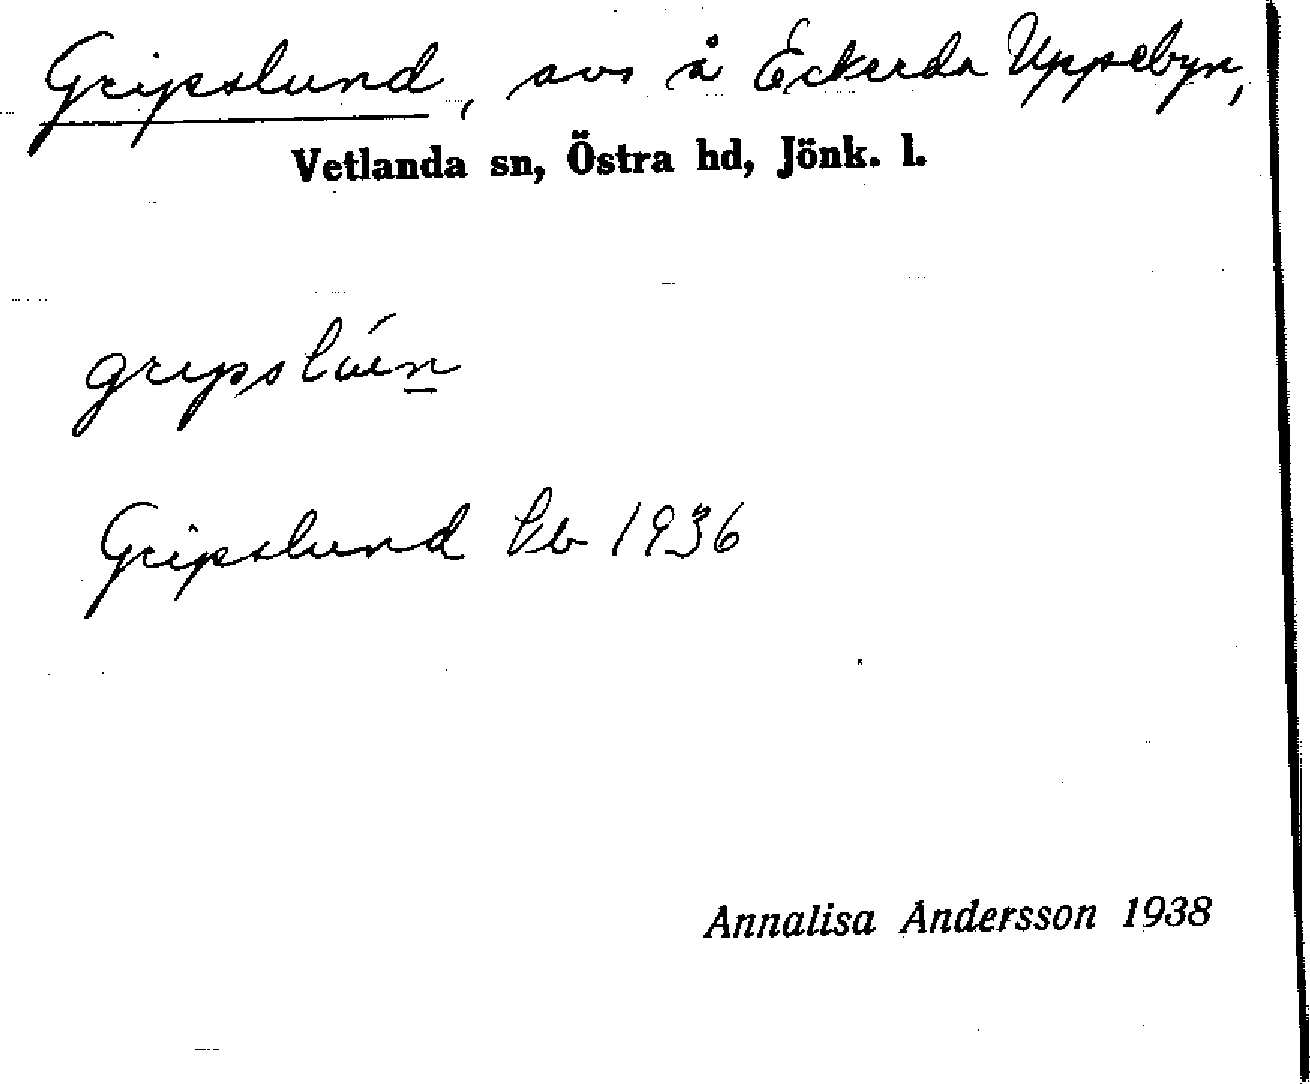 Gripslund, avs å Eckerda Uppsebyn,
Vetlanda sn, Östra hd, Jönk. l.
Gripslund 1936
Annalisa Andersson 1938